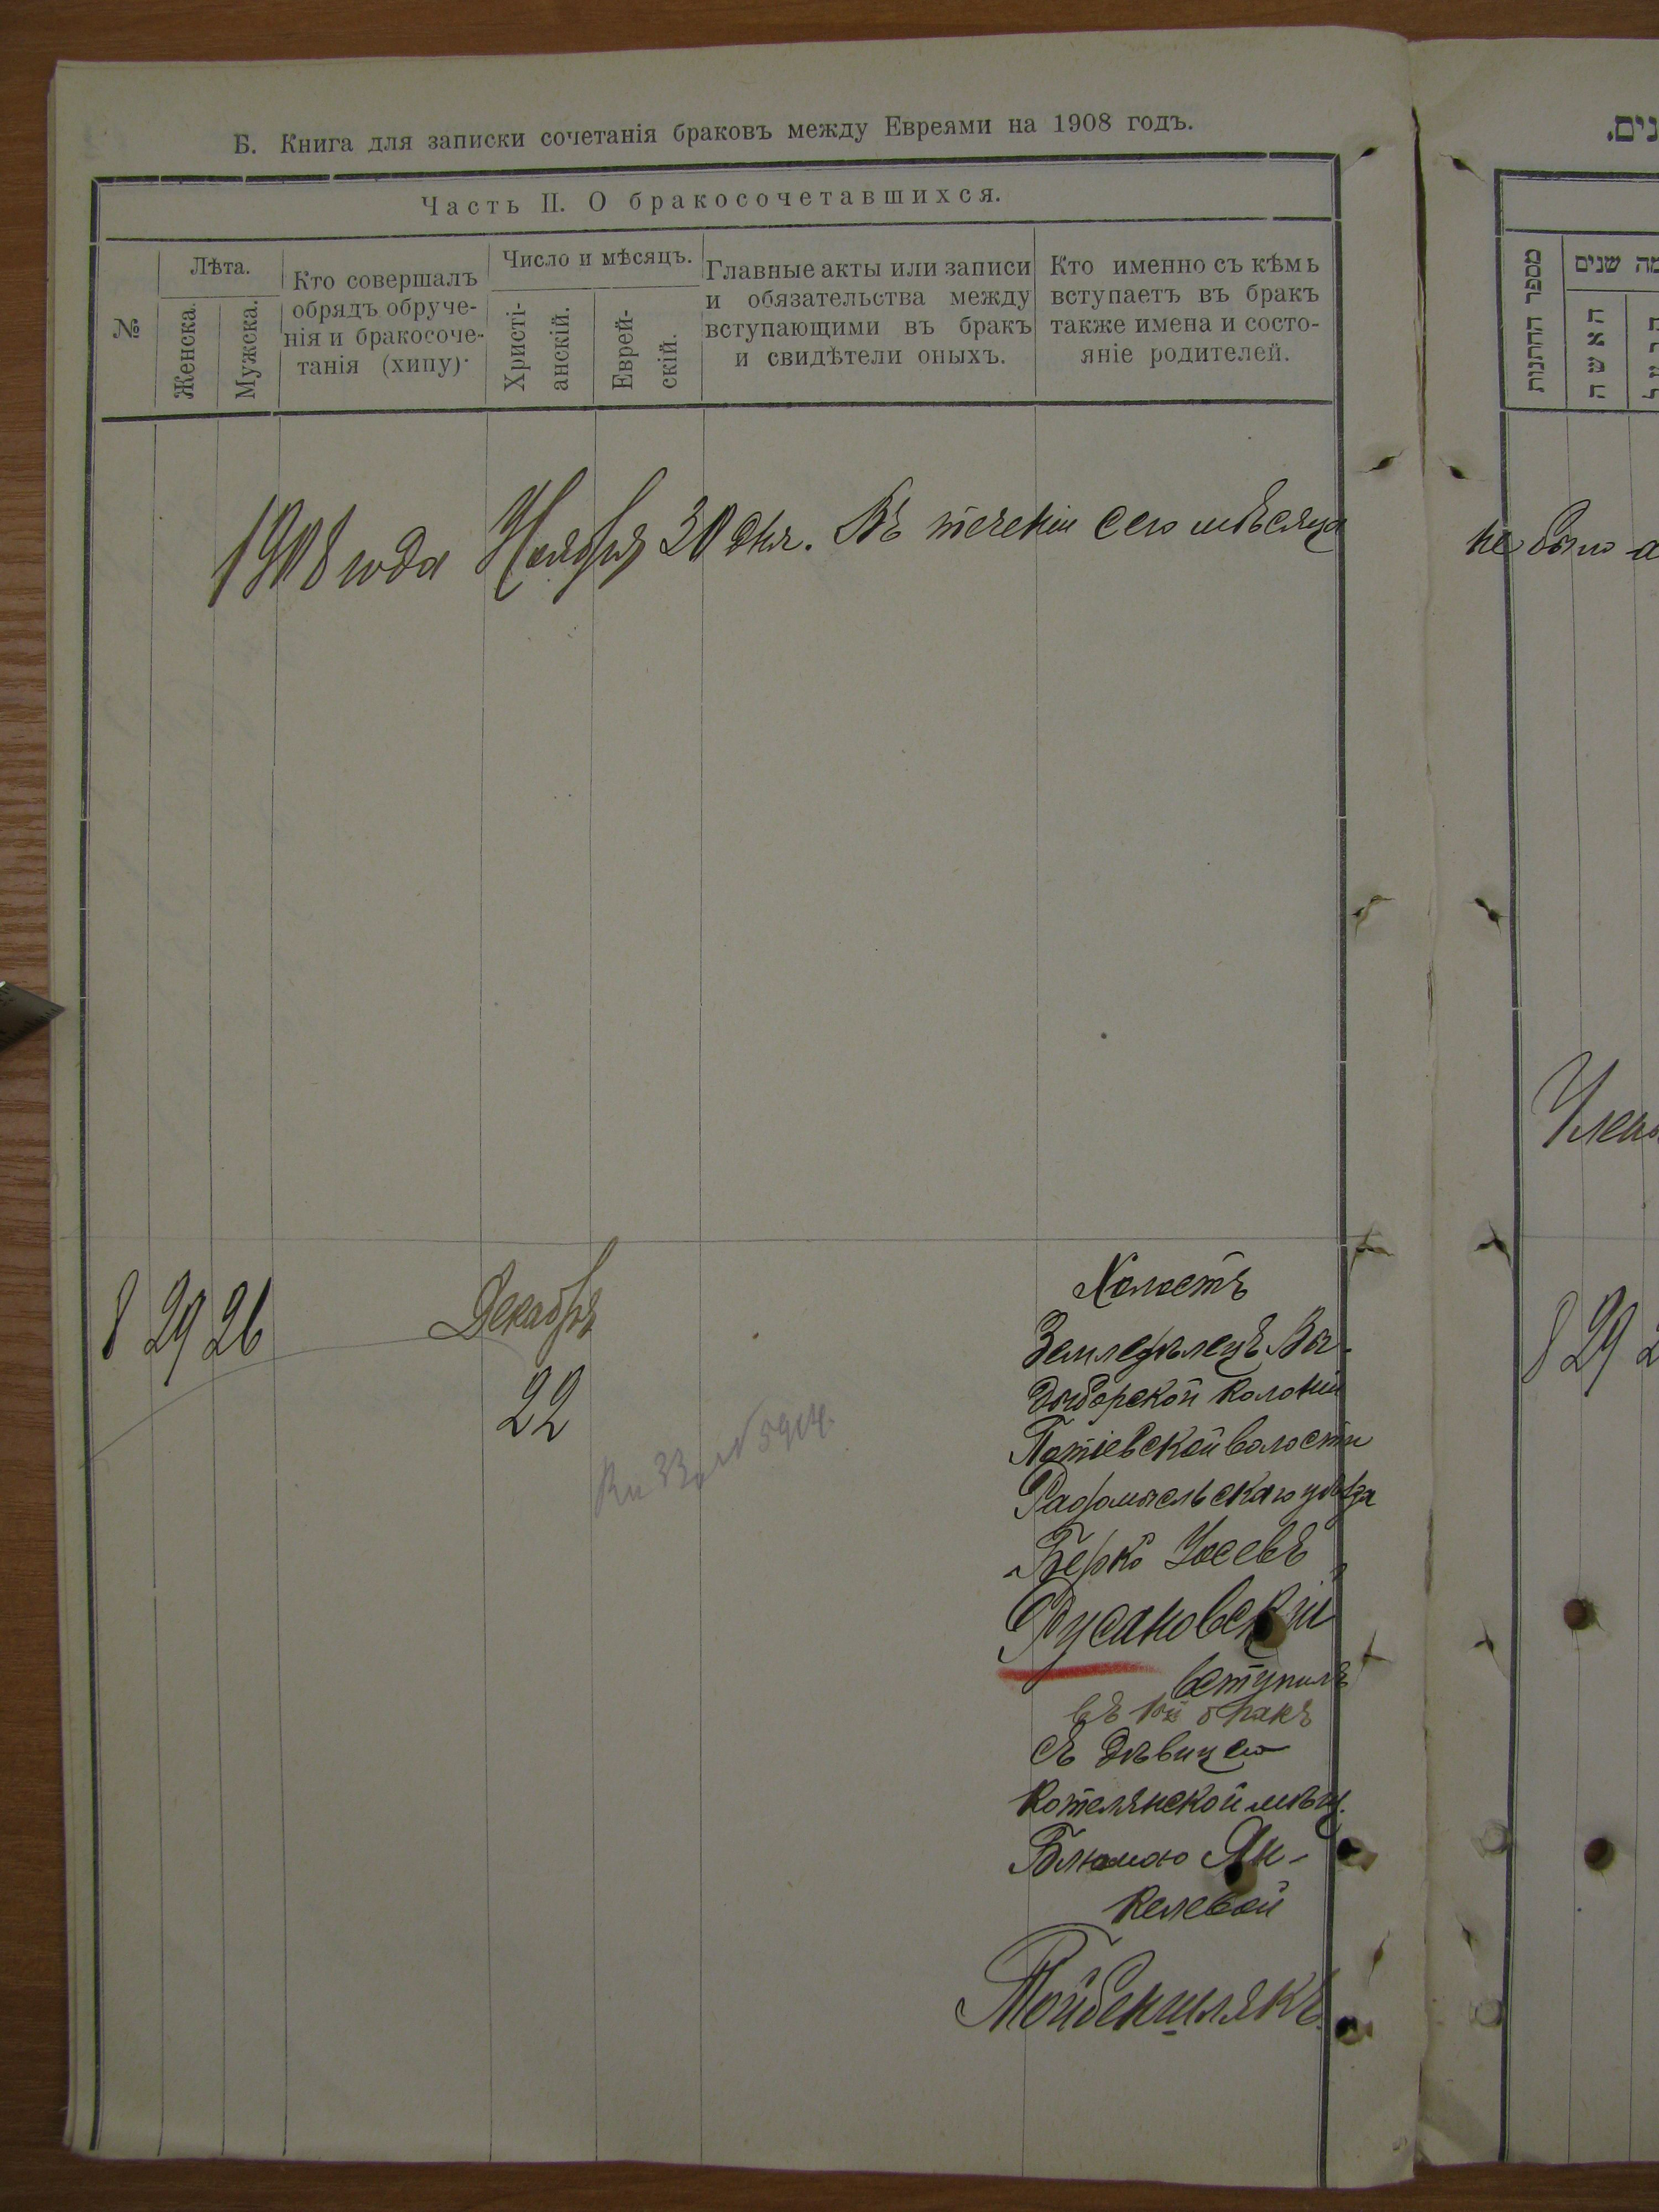 Б. Книга для записки сочетанія браковъ между Евреями на 1908 годъ.
Часть II. О бракосочетавшихся.
№
Лѣта.
Женска.
Мужска.
Кто совершалъ
обрядъ обруче-
нія и бракосоче-
танія (хипу).
Число и мѣсяцъ.
Христі-
анскій.
Еврей-
скій.
Главные акты или записи
и обязательства между
вступающими въ бракъ
и свидѣтели оныхъ.
Кто именно съ кѣмъ
вступаетъ въ бракъ
также имена и состо-
яніе родителей.
1908 года Ноября 30 дня. Въ теченіи сего мѣсяца
8 29 26 Декабря
22
Холостъ
Земледѣлецъ Вы-
дыборской колоніи
Потіевской волости
Радомысльскаго уѣзда
Берко Іосевъ
Русановскій
вступилъ
въ 1ый бракъ
съ дѣвицею
Котелянской мѣщ.
Блюмою Ян-
келевой
Тойбеншлякъ
נים.
מספר החתונות
מה שנים
האשה
не было
Член
8 29 2